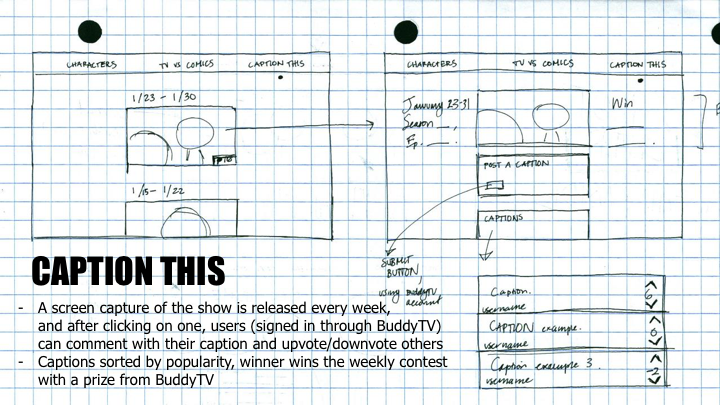 CHARACTERS TV VS COMICS CAPTION THIS
1/23 - 1/30
1/15 - 1/22
CHARACTERS TV VS COMICS CAPTION THIS
January 23-31
Season __,
Ep. __.
Win
POST A CAPTION
CAPTIONS
SUBMIT
BUTTON,
using BuddyTV
account
Caption.
6
username
CAPTION example.
0
username
Caption example 3.
-2
username
CAPTION THIS
- A screen capture of the show is released every week,
and after clicking on one, users (signed in through BuddyTV)
can comment with their caption and upvote/downvote others
- Captions sorted by popularity, winner wins the weekly contest
with a prize from BuddyTV